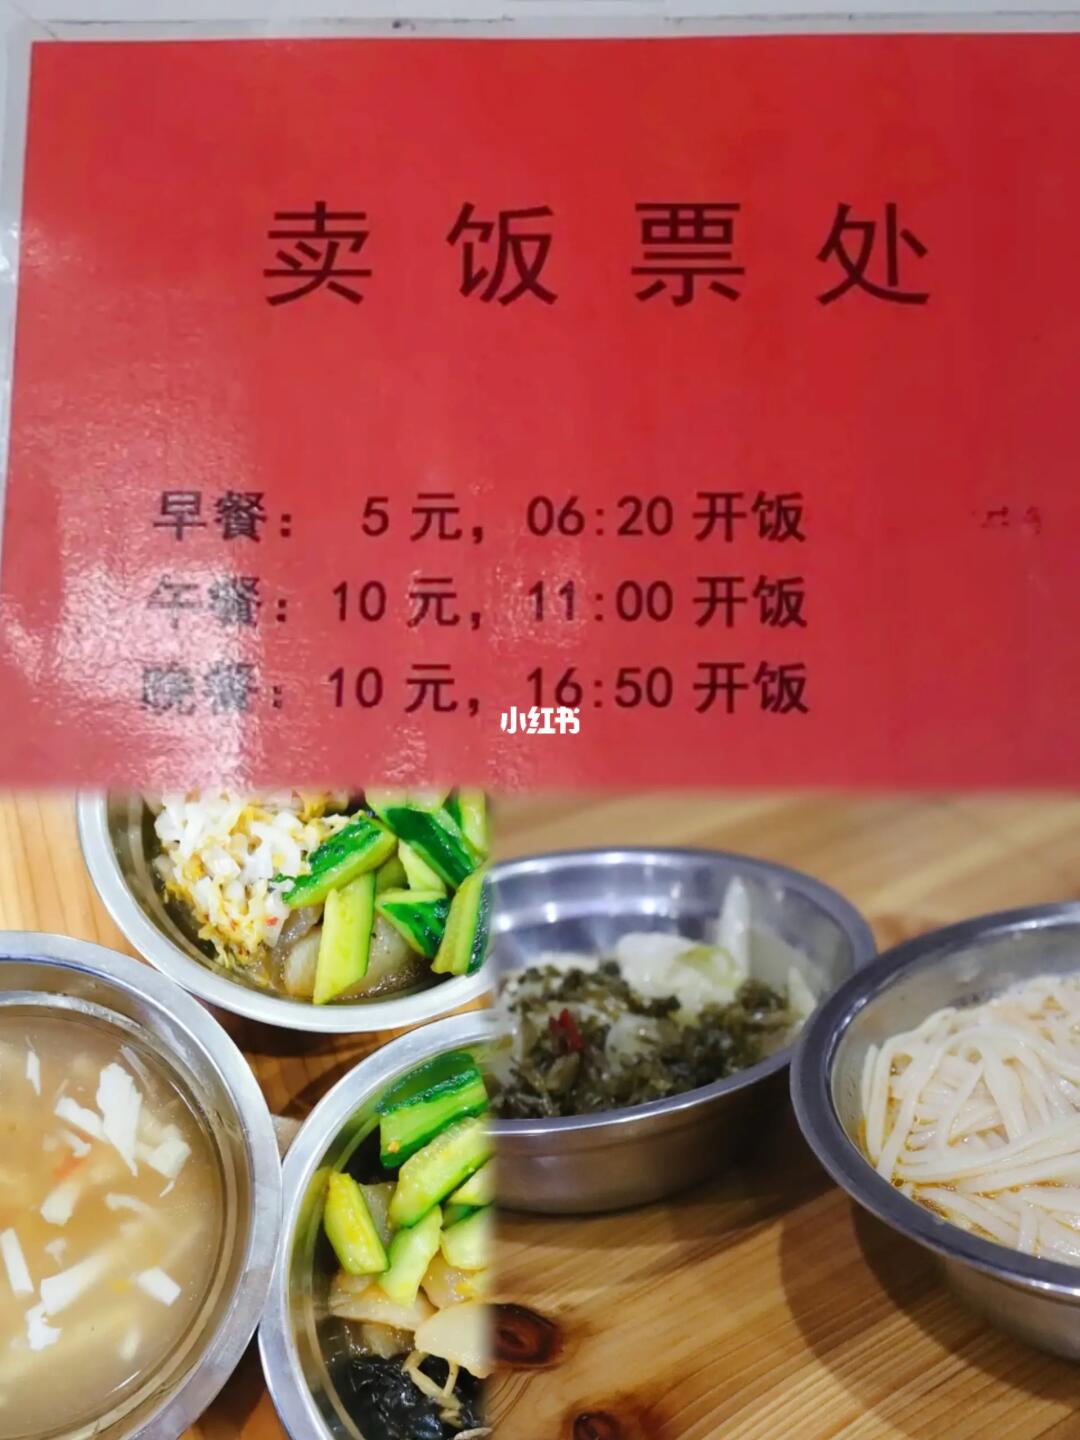 卖饭票处
早餐： 5元，06:20开饭
午餐：10元，11:00开饭
晚餐：10元，16:50开饭
小红书